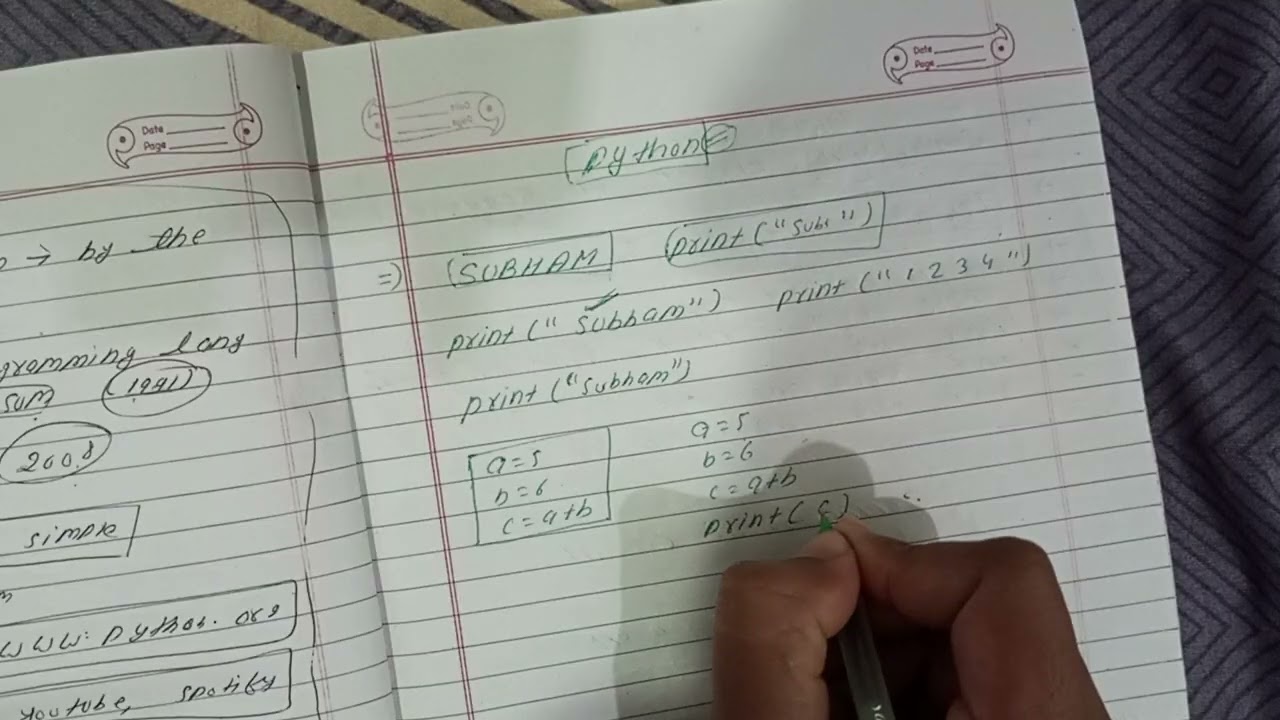 Date
Page
by the
programming lang
(1991)
2008
simple
www.python.org
Youtube, spotify
Date
Page
Python
=) SUBHAM print("Subs")
print("Subham") print("1 2 3 4")
print("Subham")
a=5
b=6
c=a+b
a=5
b=6
c=a+b
print(c)